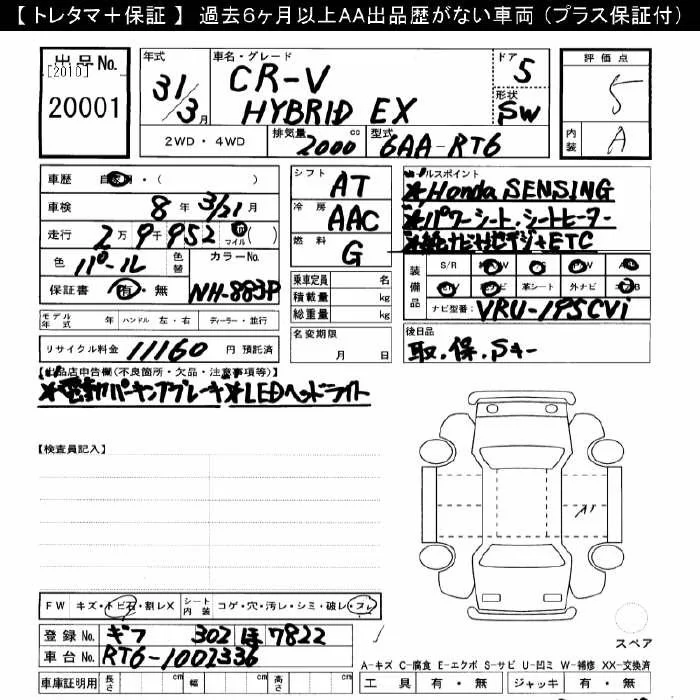 【トレタマ＋保証】 過去6ヶ月以上AA出品歴がない車両（プラス保証付）
出品No.
[2010]
20001
年式
31/3月
車名・グレード
CR-V
HYBRID EX
ドア
5
形状
SW
評価点
5
内装
A
2WD・4WD
排気量
2000 cc
型式
6AA-RT6
車歴 自家用・( )
車検 8年3/21月
走行 2万9千952 マイル( )
色 パール
色替
カラーNo.
NH-883P
保証書 有・無
シフト
AT
冷房
AAC
燃料
G
セールスポイント
※Honda SENSING
※パワーシート.シートヒーター
※純ナビ地デジ+ETC
乗車定員 名
積載量 kg
総重量 kg
装備品
S/R
革シート 外ナビ
ナビ型番: VRU-195CVi
モデル年式 年 ハンドル 左・右 ディーラー・並行
リサイクル料金 11160 円 預託済
名変期限
月 日
後日品
取.保.Sキー
【出品店申告欄(不良箇所・欠品・注意事項等)】
※電動パーキングブレーキ※LEDヘッドライト
【検査員記入】
A1
FW キズ・トビ石・割レX
シート内装 コゲ・穴・汚レ・シミ・破レ・スレ
登録No. ギフ 302 ほ 7822
車台No. RT6-1002336
スペア
A-キズ C-腐食 E-エクボ S-サビ U-凹ミ W-補修 XX-交換済
車庫証明用 長さ cm 幅 cm 高さ cm
工具 有・無 ジャッキ 有・無